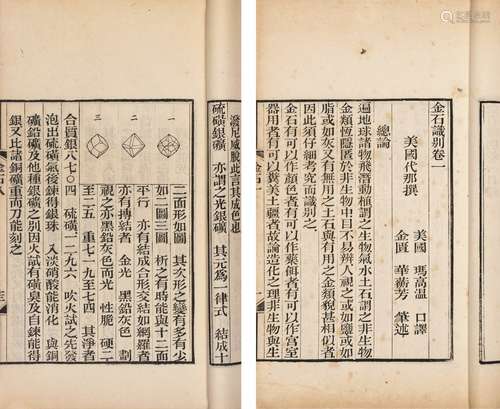 金石識別卷一
美國代那撰
美國 瑪高温 口譯
金匱 華蘅芳 筆述
總論
遍地球諸物飛潛動植謂之生物氣水土石謂之非生物
金類恆隱匿於非生物中目不易辨人視之或如鹽或如
脂或如灰又有無用之土石與有用之金類貌甚相似者
因此須仔細考究而識別之
金石有可以作 者有可以作藥餌者有可以作宮室
器用者有可以糞美土疆者故論造化之理非生物與生
此言其成色也
硫磺銀礦 亦謂之光銀礦 其元為一律式 結成十
一
二
三
二面形如圖 其次形之變有多有少
如二圖三圖 析之有時能與十二面
平行 亦有結成合形交結如網羅者
亦有摶結者 金光 黑鉛灰色 劃
視之亦黑鉛灰色而光 性脆 硬二
至二五 重七一九至七四 其淨者
合質銀八七〇四 硫磺一二九六 吹火試之先發
泡出硫磺氣後得銀珠 入淡硝酸能消化 與銅
礦鉛礦及他種銀礦之別因火試有磺臭及自鍊能得
銀又比諸銅礦重而刀能刻之